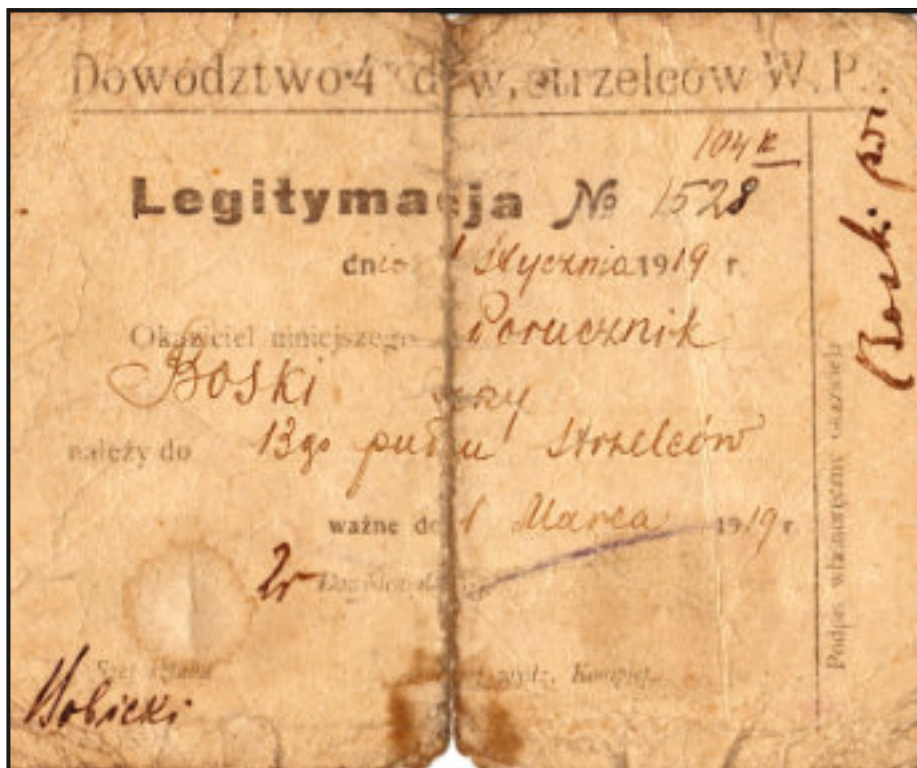 Dowództwo 4 dyw. strzelców W. P.
104
Legitymacja № 1528
dnia 1 Stycznia 1919 r.
Okaziciel niniejszego Porucznik
Boski
należy do 13go pułku Strzelców
ważne do 1 Marca 1919 r.
Szef Sztabu
Podpis własnoręczny okaziciela
Boski por.